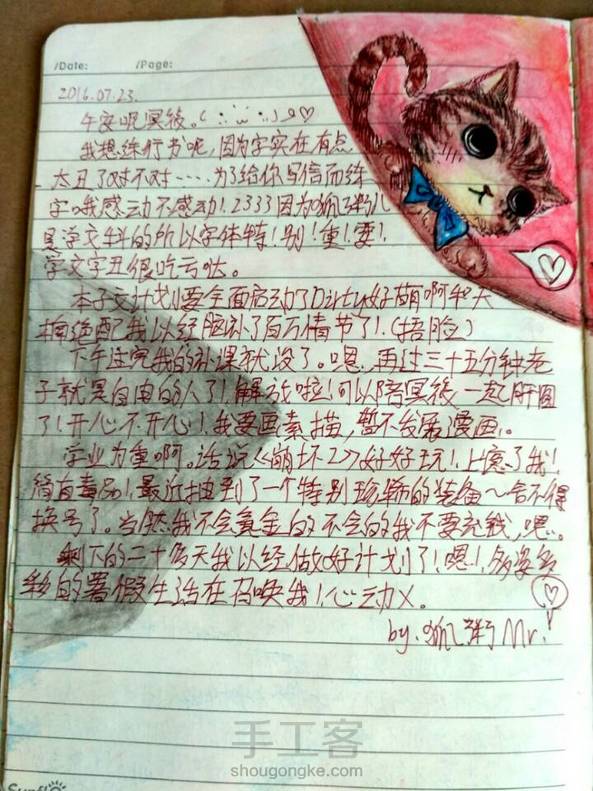 /Date: /Page:
2016.07.23.
午安呢冥後。
我想练行书呢,因为字实在有点
太丑了对不对····为了给你写信而练
字哦感动不感动!2333因为狐粥儿
是学文科的所以字体特!别!重!要!
学文字丑很吃亏哒。
本子交计划要全面启动了 好萌啊和天
相绝配我以经脑补了百万情节了!(捂脸)
下午连完我的补课就没了。嗯,再过三十五分钟老
子就是自由的人了!解放啦!可以陪冥後一起肝图
了!开心不开心!我要画素描,暂不发展漫画。
学业为重啊。话说《崩坏2》好好玩!上瘾了我!
简直毒品!最近抽到了一个特别 的装备~舍不得
换号了。当然我不会氪金的不会的我不要充钱,嗯。
剩下的二十多天我以经做好计划了!嗯!多姿多
彩的暑假生活在召唤我!心动X。
by.狐粥Mr.
手工客
shougongke.com